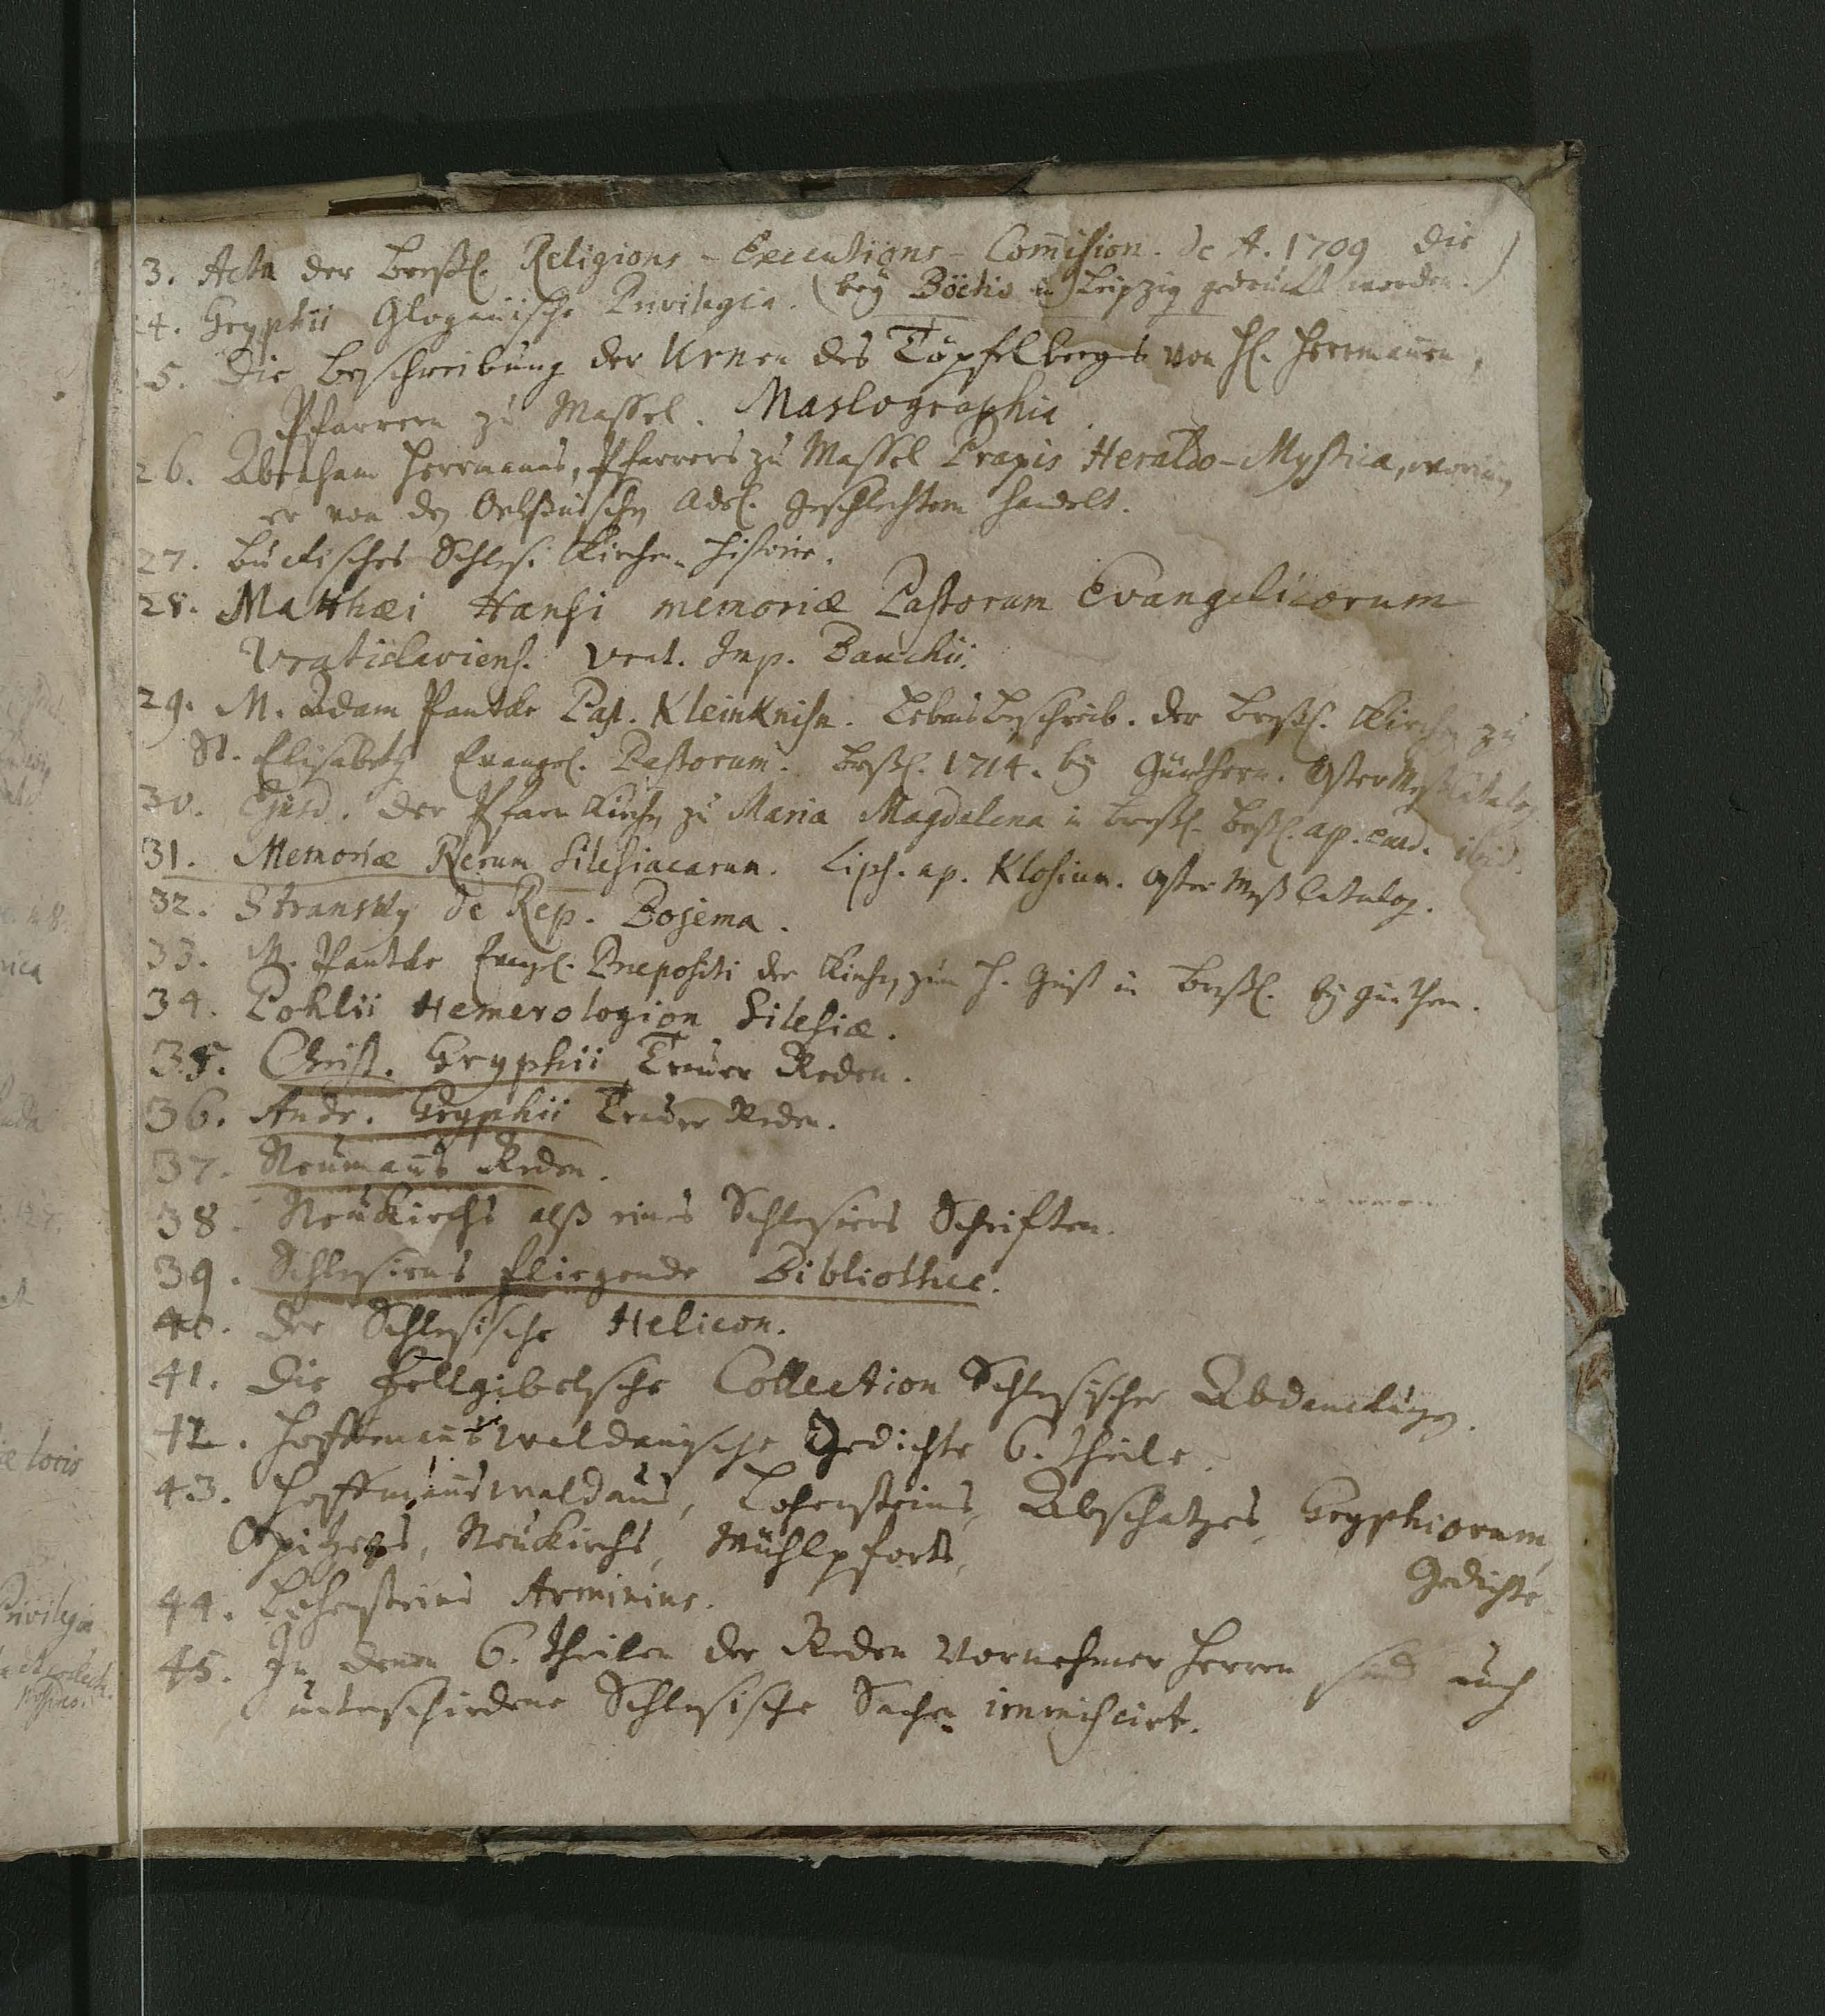 3. Acta der Breßl. Religions-Executions-Commision. de A. 1709 die
24. Gryphii Glogauische Privilegia. (bey Böetio in Leipzig gedruckt worden.)
25. Die Beschreibung der Urnen des Töpfelbergs von H. Herrmannen,
Pfarrern zu Massel. Maslographia.
26. Abraham Herrmanns, Pfarrers zu Massel Praxis Heraldo-Mystica, worinn
er von den Oelßnischen Adel. Geschlechtern handelt.
27. Buckisches Schles. Kirchen-Historie.
28. Matthæi Hansi memoriæ Pastorum Evangelicorum
Vratislaviens. Vrat. Imp. Bauchii.
29. M. Adam Pantke Past. Kleinknisn. Lebens Beschreib. der Breßl. Kirchen zu
St. Elisabeth Evangel. Pastorum. Breßl. 1714. bey Günthern. Oster Meß Catalog.
30. Ejusd. der Pfarr Kirchen zu Maria Magdalena in Breßl. Breßl. ap. eund. ibid.
31. Memoriæ Rerum Silesiacarum. Lips. ap. Klosium. Oster Meß Catalog.
32. Stransky de Rep. Bojema.
33. M. Pantke Evangel. Præpositi der Kirchen zum H. Geist in Breßl. bey Günthern.
34. Pohlii Hemerologion Silesiæ.
35. Christ. Gryphii Trauer Reden.
36. Andr. Gryphii Trauer Reden.
37. Neumanns Reden.
38. Neukirchs alß eines Schlesiers Schriften.
39. Schlesiens fliegende Bibliothec.
40. Der Schlesische Helicon.
41. Die Fellgibelsche Collection Schlesischer Abdanckungen.
42. Hoffmannswaldauische Gedichte 6. Theile.
43. Hoffmannswaldaus, Lohensteins, Abschatzes, Gryphiorum,
Opitzens, Neukirchs, Mühlpforts,
Gedichte.
44. Lohensteins Arminius.
45. In denen 6. Theilen der Reden Vornehmer Herren sind auch
unterschiedene Schlesische Sachen immiscirt.